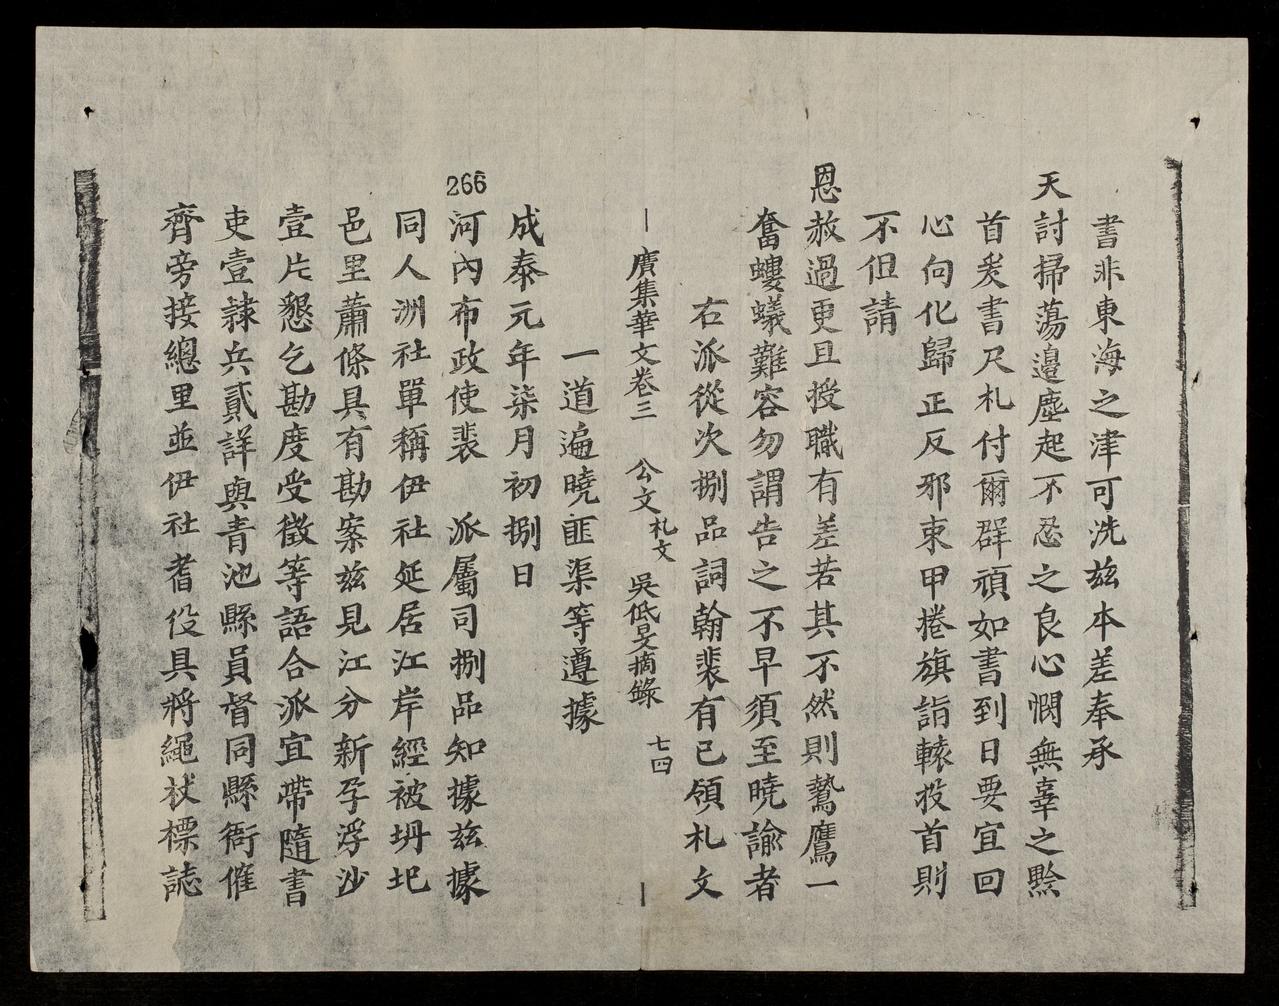 書非東海之津可洗玆本差奉承
天討掃蕩邊塵起不忍之良心憫無辜之黔
首爰書尺札付爾群頑如書到日要宜回
心向化歸正反邪束甲捲旗詣轅投首則
不但請
恩赦過更且授職有差若其不然則鷙鷹一
奮螻蟻難容勿謂告之不早須至曉諭者
右派從次捌品詞翰裴有已領札文
廣集華文卷三 公文 札文 吳低旻摘錄 七四
一道遍曉匪渠等遵據
成泰元年柒月初捌日
266
河內布政使裴 派屬司捌品知據玆據
同人洲社單稱伊社延居江岸經被坍圯
邑里蕭條具有勘案玆見江分新孕浮沙
壹片懇乞勘度受徵等語合派宜帶隨書
吏壹隸兵貳詳與青池縣員督同縣衙催
齊旁接總里並伊社耆役具將繩杖標誌